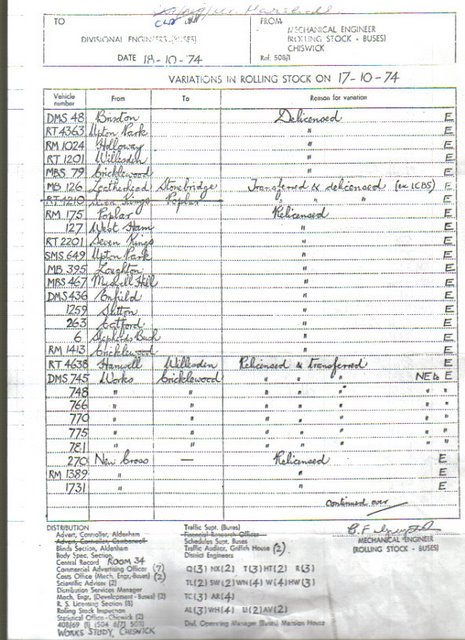 TO
DIVISIONAL ENGINEERS (BUSES)
DATE 18-10-74
FROM
MECHANICAL ENGINEER
(ROLLING STOCK - BUSES)
CHISWICK
Ref: 508/1
VARIATIONS IN ROLLING STOCK ON 17-10-74
Vehicle number From To Reason for variation
DMS 48 Brixton Delicensed E
RT 4363 Upton Park " E
RM 1024 Holloway " E
RT 1201 Willesden " E
MBS 79 Cricklewood " E
MB 126 Leatherhead Stonebridge Transferred & delicensed (ex LCBS) E
RT 4210 Seven Kings Poplar " " " E
RM 175 Poplar Relicensed E
127 West Ham " E
RT 2201 Seven Kings " E
SMS 649 Upton Park " E
MB 395 Loughton " E
MBS 467 Muswell Hill " E
DMS 436 Enfield " E
1259 Sutton " E
263 Catford " E
6 Shepherds Bush " E
RM 1413 Cricklewood " E
RT 4638 Hanwell Willesden Relicensed & transferred E
DMS 745 Works Cricklewood " " " NEW E
748 " " " " " " "
766 " " " " " " "
770 " " " " " " "
775 " " " " " " "
781 " " " " " " "
270 New Cross — Relicensed E
RM 1389 " " E
1731 " " E
continued over
MECHANICAL ENGINEER
(ROLLING STOCK - BUSES)
DISTRIBUTION
Advert. Controller, Aldenham
Advert. Controller, Camberwell
Blinds Section, Aldenham
Body Spec. Section
Central Record ROOM 34
Commercial Advertising Officer (7)
Costs Office (Mech. Engr-Buses) (2)
Scientific Adviser (2)
Distribution Services Manager
Mech. Engr. (Development - Buses) (2)
R. S. Licensing Section (8)
Rolling Stock Inspection
Statistical Office - Chiswick (2)
WORKS STUDY, CHISWICK
Traffic Supt. (Buses)
Financial Research Officer
Schedules Supt. Buses
Traffic Auditor, Griffith House (2)
District Engineers
Q(3) HX(2) T(3) HT(2) R(3)
TL(2) SW(2) WN(4) W(4) HW(3)
TC(3) AR(4)
AL(3) WH(4) U(2) AV(2)
Dist. Operating Manager (Buses) Mansion House